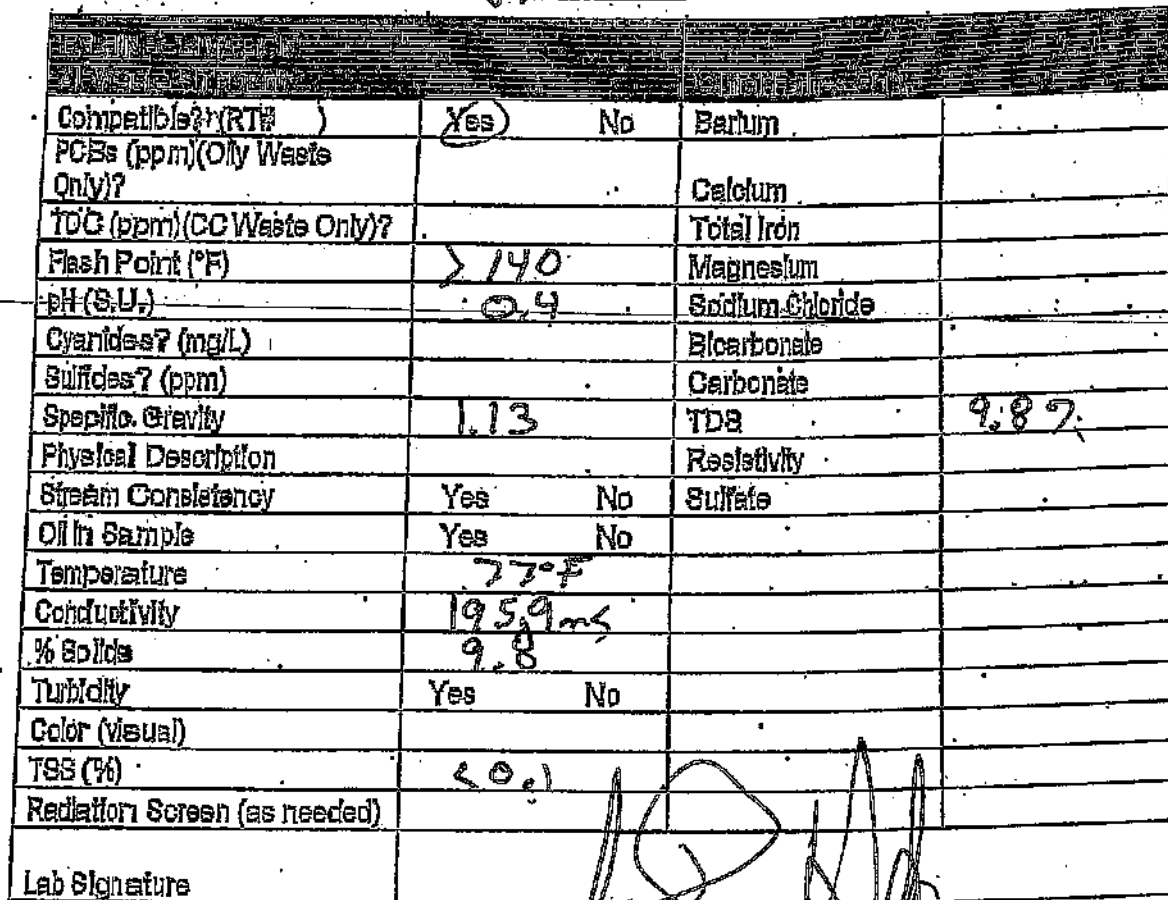 Compatible? (RT# ) Yes No Barium
PCBs (ppm)(Oily Waste
Only)? Calcium
TOC (ppm)(CC Waste Only)? Total Iron
Flash Point (°F) >140 Magnesium
pH (S.U.) 0.4 Sodium Chloride
Cyanides? (mg/L) Bicarbonate
Sulfides? (ppm) Carbonate
Specific Gravity 1.13 TDS 9.8%
Physical Description Resistivity
Stream Consistency Yes No Sulfate
Oil in Sample Yes No
Temperature 77°F
Conductivity 195.9 ms
% Solids 9.8
Turbidity Yes No
Color (visual)
TSS (%) <0.1
Radiation Screen (as needed)
Lab Signature